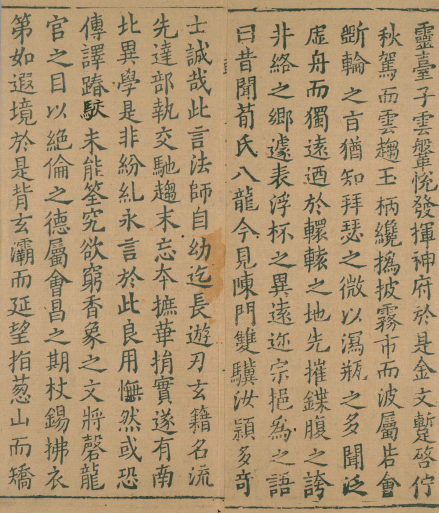 靈臺子雲鞶帨發揮神府於是金文暫啓佇
秋駕而雲趨玉柄纔撝披霧市而波屬若會
斲輪之旨猶知拜瑟之微以瀉瓶之多聞泛
虛舟而獨遠迺於轘轅之地先摧鍱腹之誇
井絡之鄉遽表浮杯之異遠迩宗挹為之語
曰昔聞荀氏八龍今見陳門雙驥汝潁多奇
士誠哉此言法師自幼迄長遊刃玄籍名流
先達部執交馳趨末忘本摭華捐實遂有南
北異學是非紛糺永言於此良用憮然或恐
傳譯踳駮未能筌究欲窮香象之文將罄龍
宮之目以絕倫之德屬會昌之期杖錫拂衣
第如遐境於是背玄灞而延望指葱山而矯